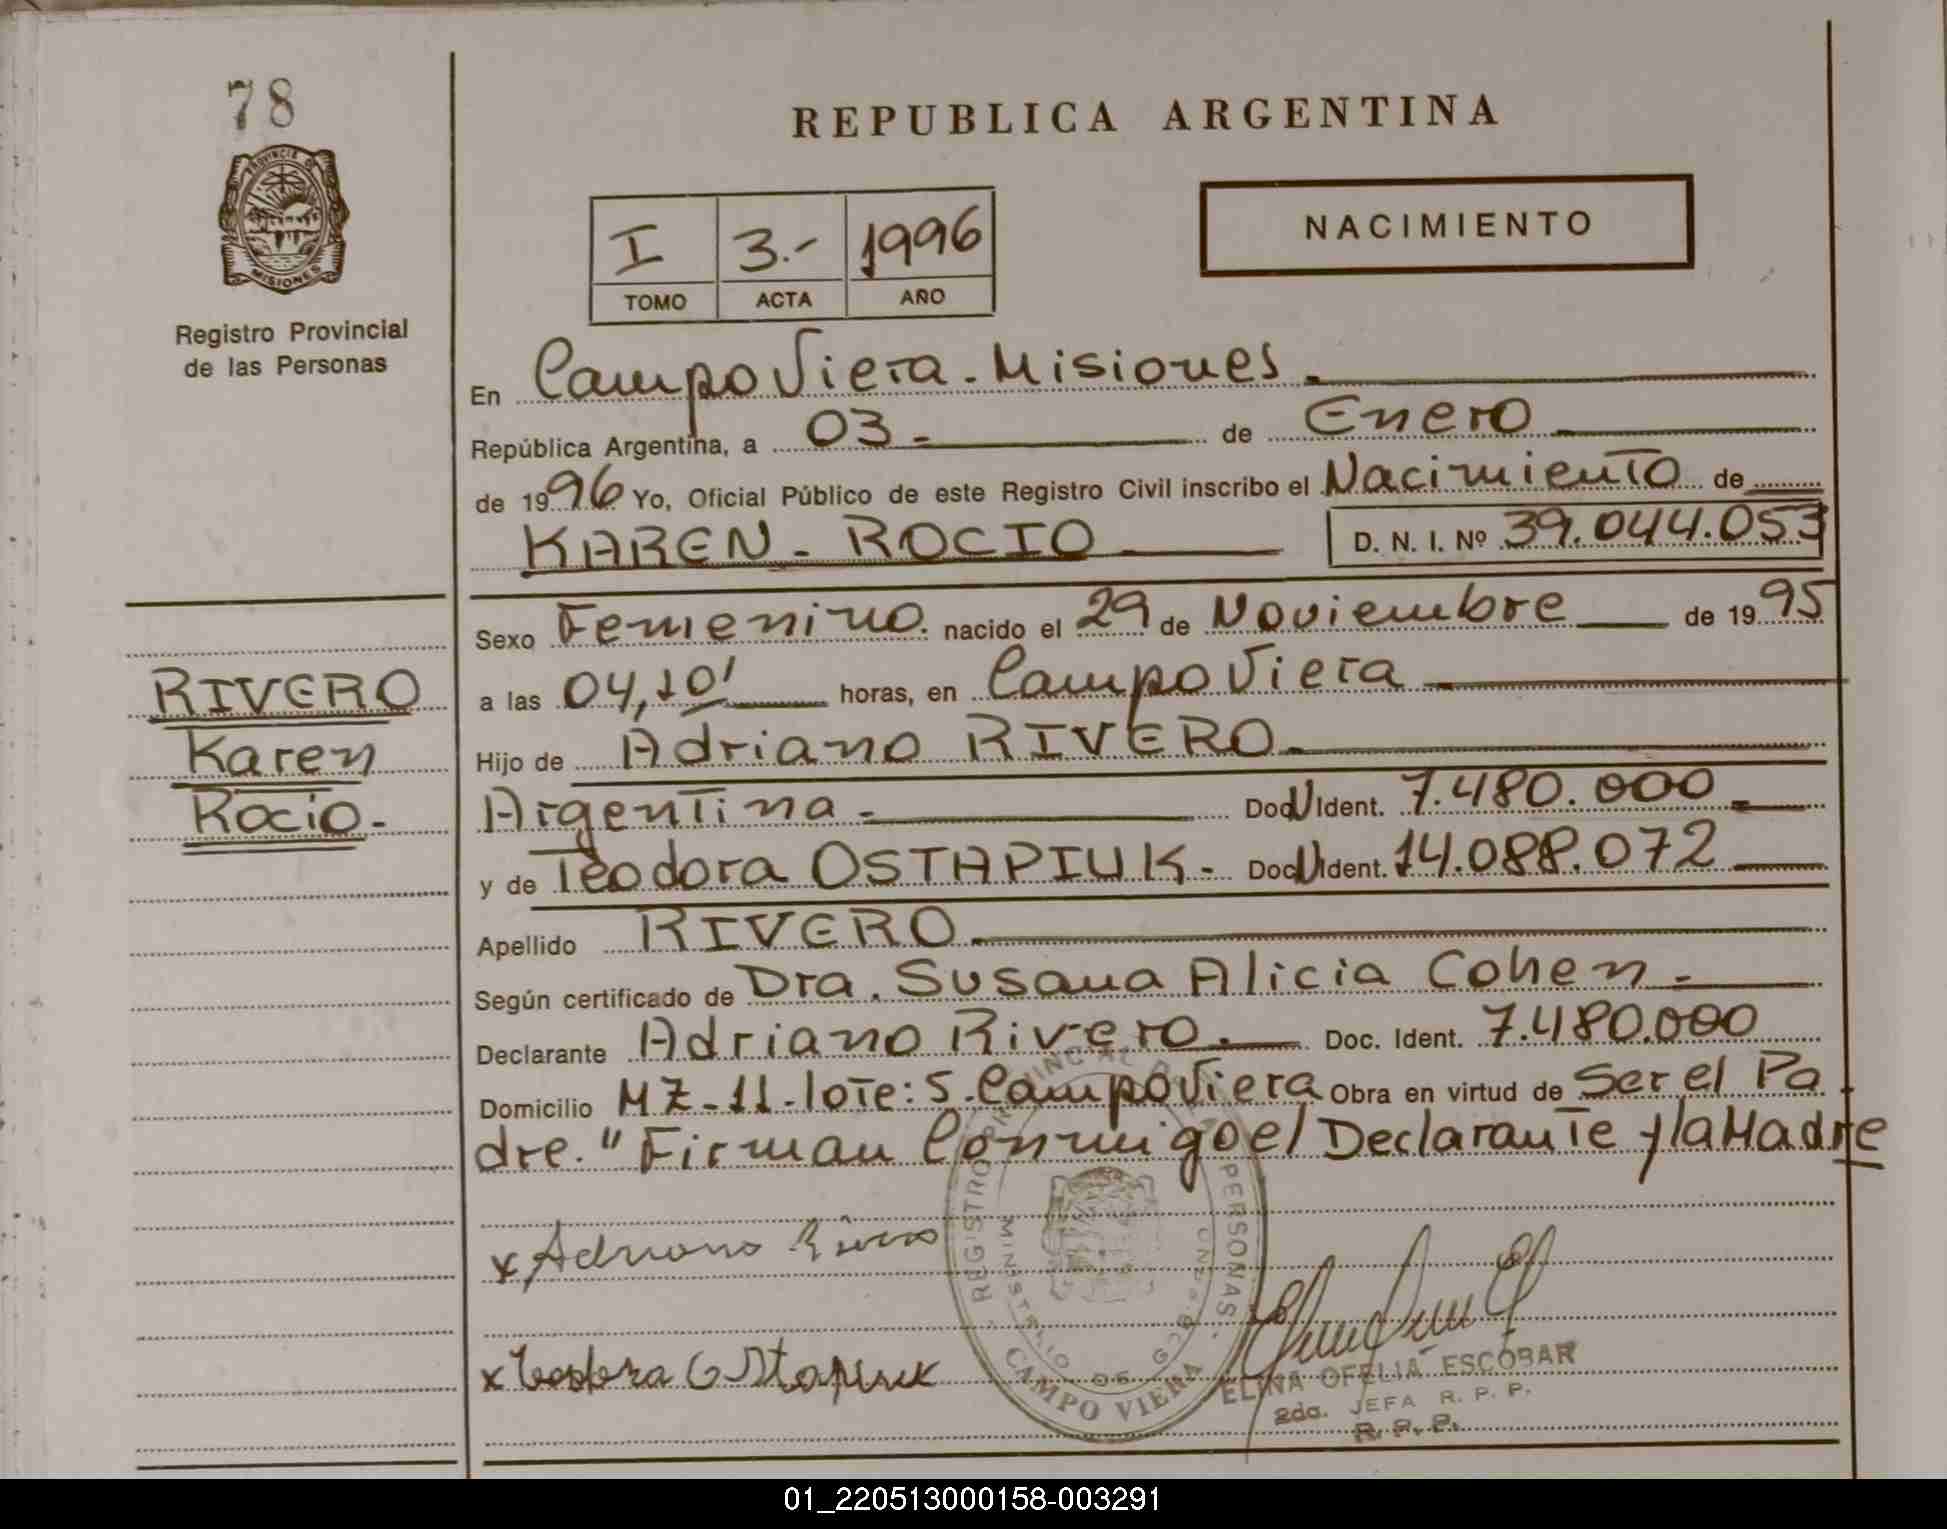 78
PROVINCIA DE
MISIONES
Registro Provincial
de las Personas
REPUBLICA ARGENTINA
I 3.- 1996
TOMO ACTA AÑO
NACIMIENTO
En Campo Viera - Misiones.
República Argentina, a 03 - de Enero
de 1996 Yo, Oficial Público de este Registro Civil inscribo el Nacimiento de
KAREN - ROCIO D. N. I. Nº 39.044.053
Sexo Femenino. nacido el 29 de Noviembre de 1995
a las 04,10' horas, en Campo Viera
Hijo de Adriano RIVERO -
Argentina - Doc U Ident. 7.480.000 -
y de Teodora OSTAPIUK - Doc U Ident. 14.088.072
Apellido RIVERO
Según certificado de Dra. Susana Alicia Cohen -
Declarante Adriano Rivero. Doc. Ident. 7.480.000
Domicilio MZ - 11 - lote: 5. Campo Viera Obra en virtud de Ser el Pa
dre. " Firman Conmigo el Declarante y la Madre
RIVERO
Karen
Rocio -
x Adriano Rivero
x Teodora Ostapiuk
REGISTRO PROVINCIAL PERSONAS
MINISTERIO DE GOB
CAMPO VIERA
ELINA OFELIA ESCOBAR
2da. JEFA R. P. P.
R. P. P.
01_220513000158-003291